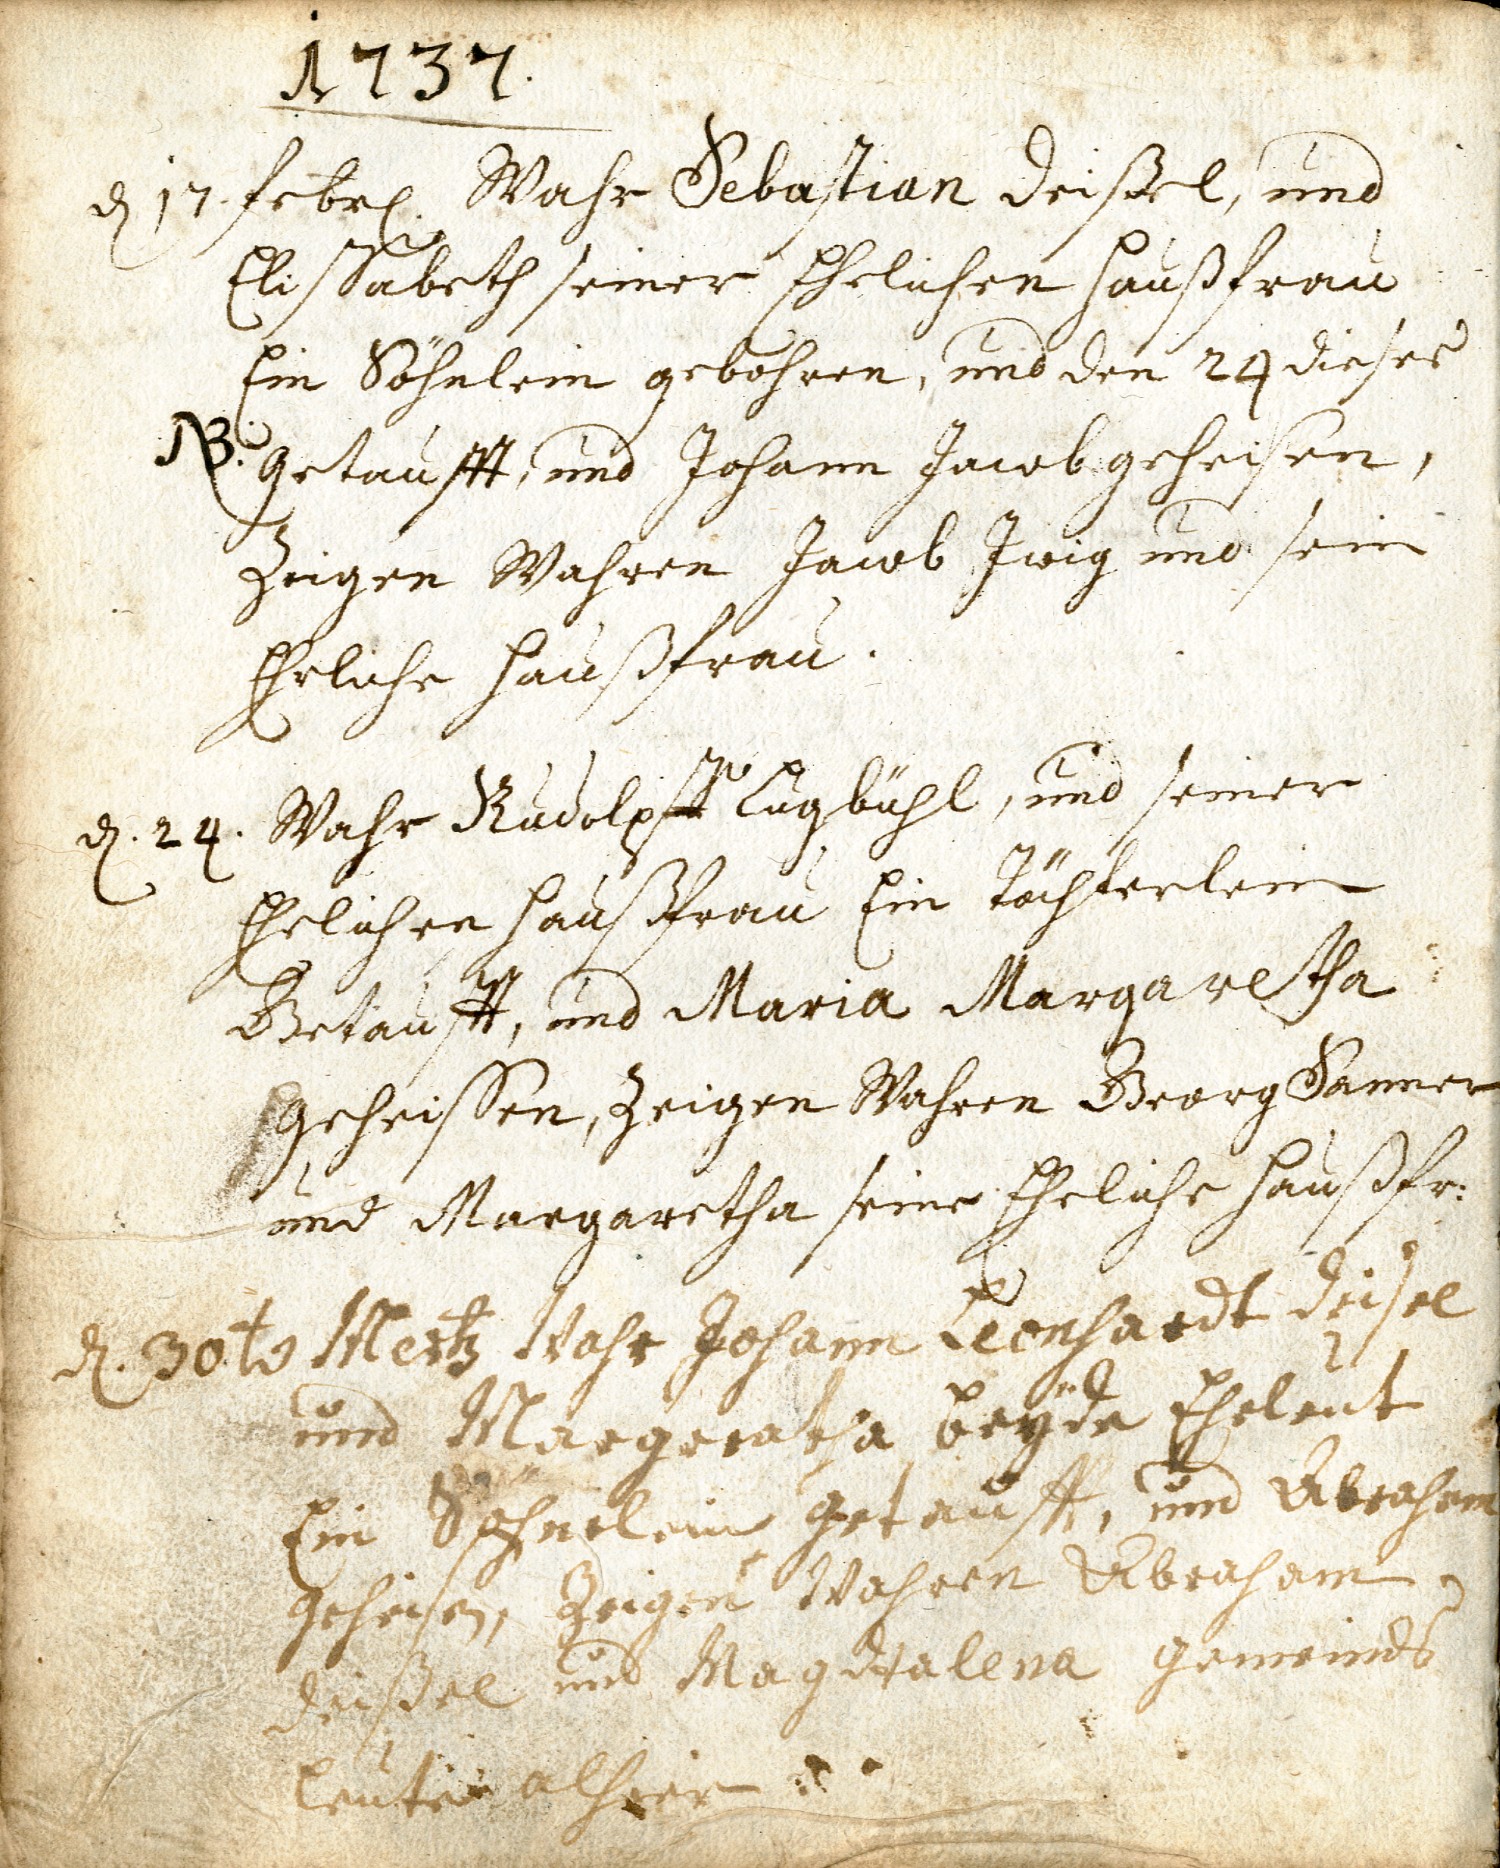 1737.
d 17. febr. Wahr Sebastian Deißel, und
Elissabeth seiner Ehelichen Haußfrau
Ein Söhnlein gebohren, und den 24 dieses
NB. Getaufft, und Johann Jacob geheisen,
Zeigen Wahren Jacob Zwig und sein
Eheliche Haußfrau.
d. 24. Wahr Rudolpff Lugbühl, und seiner
Ehelichen Haußfrau Ein Töchterlein
Getaufft, und Maria Margaretha
Geheissen, Zeigen Wahren Georg Sanner
und Margaretha seine Eheliche Haußfr:
d. 30t Mertz Wahr Johann Leonhardt Deisel
und Margreatha beÿde Eheleut
Ein Söhnelein getaufft, und Abraham
geheisen, Zeigen Wahren Abraham
Deißel und Magdalena gemeinds
Leute alhier